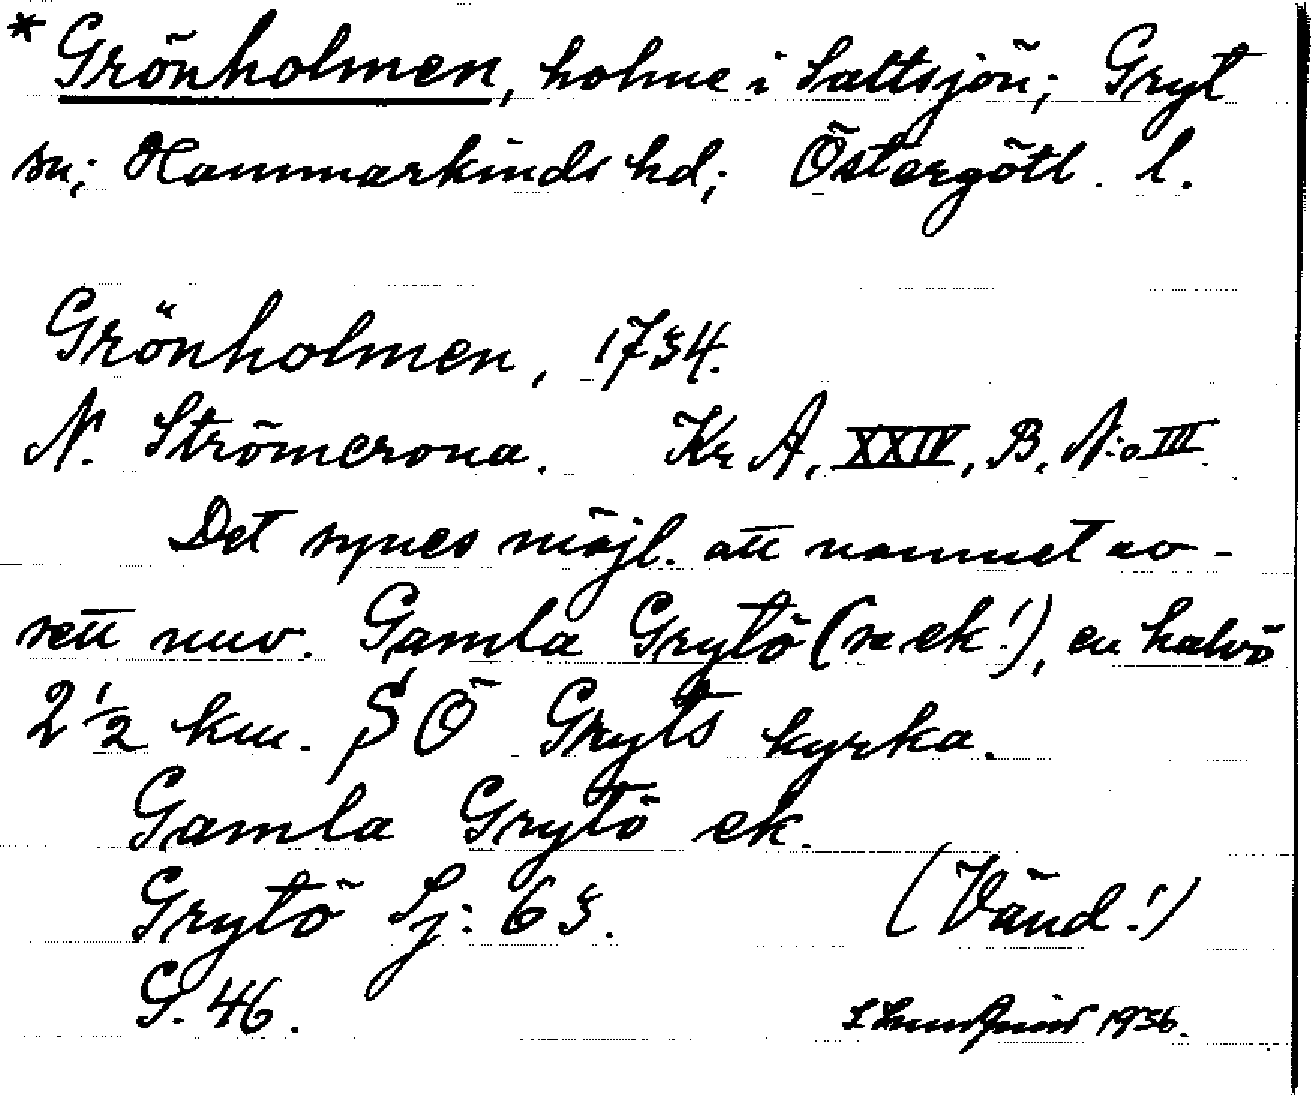 * Grönholmen, holme i Saltsjön; Gryt
sn; Hammarkinds hd; Östergötl. l.
Grönholmen, 1734.
N. Strömcrona. Kr A, XXIV, B, N:o III.
Det synes möjl. att namnet av-
sett nuv. Gamla Grytö (se ek!), en halvö
2 1/2 km. SÖ Gryts kyrka.
Gamla Grytö ek.
Grytö Sj: 63.
G. 46. (Vänd!)
1936.